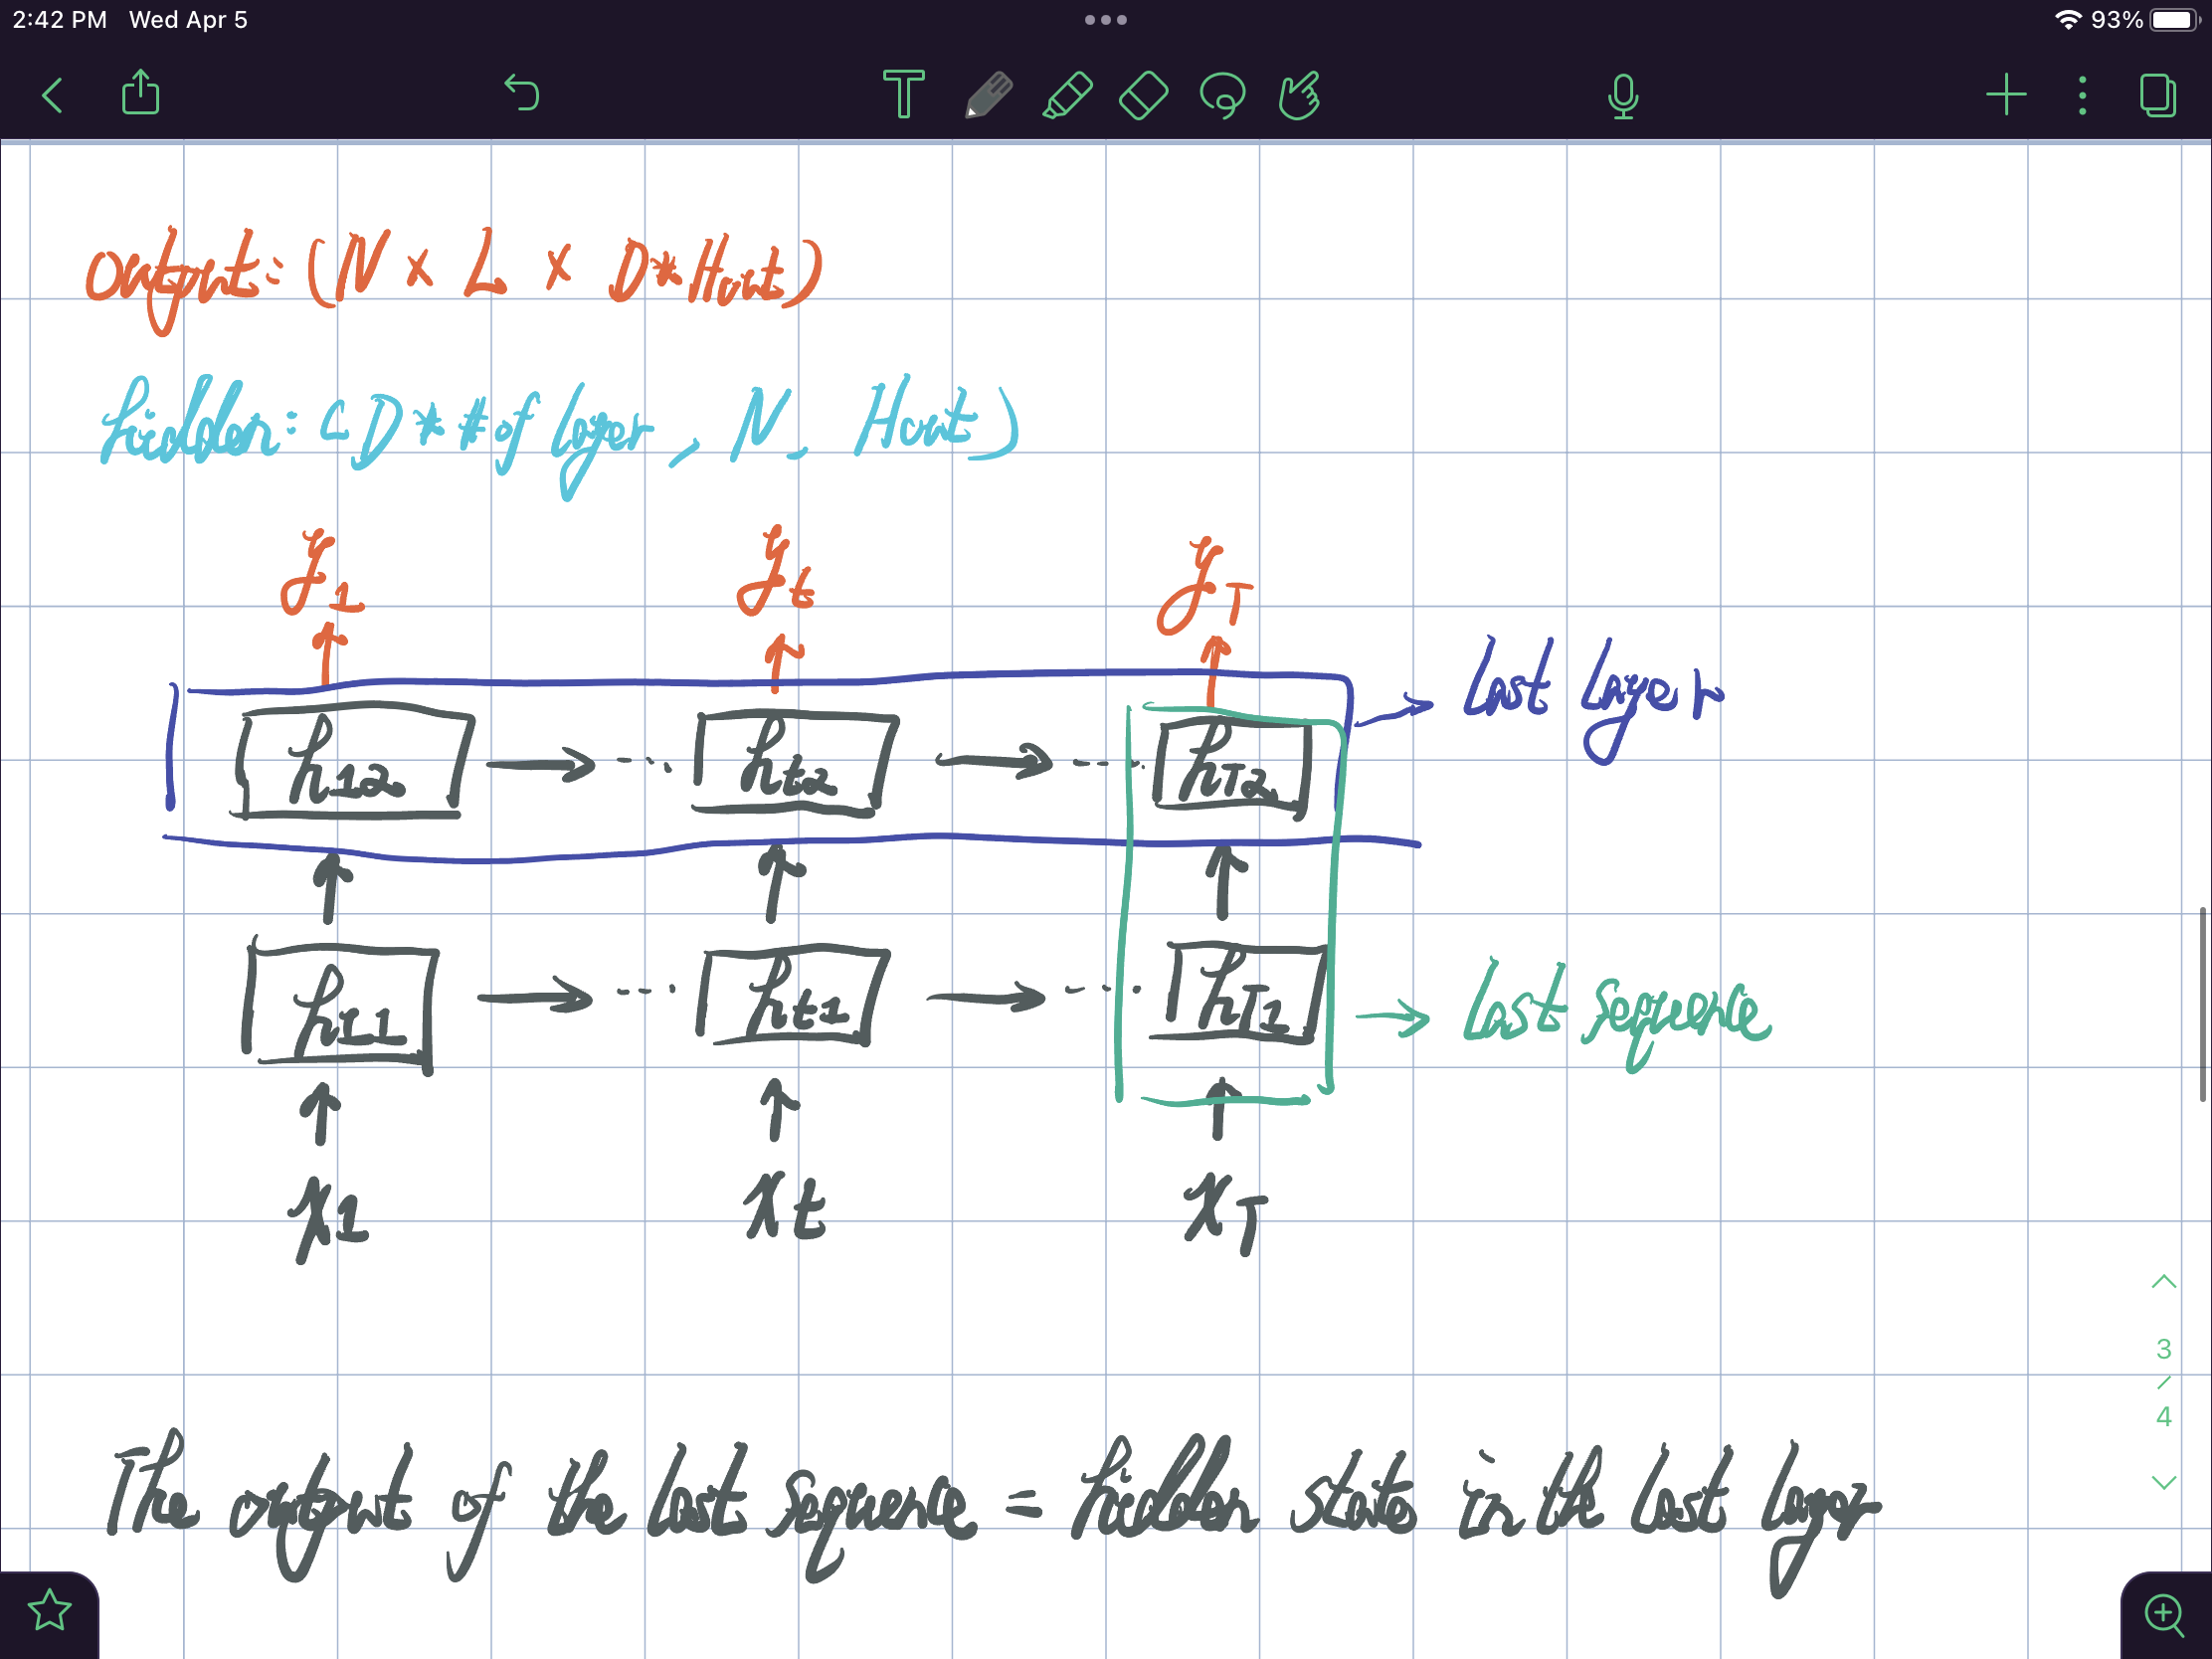 2:42 PM Wed Apr 5
93%
T
Output: (N x L x D*Hout)
hidden: (D * # of layer, N, Hout)
y1 yt yT
Last layer
h12 → ... ht2 → ... hT2
h11 → ... ht1 → ... hT1
→ Last sequence
x1 xt xT
3
/
4
The output of the last sequence = hidden state in the last layer